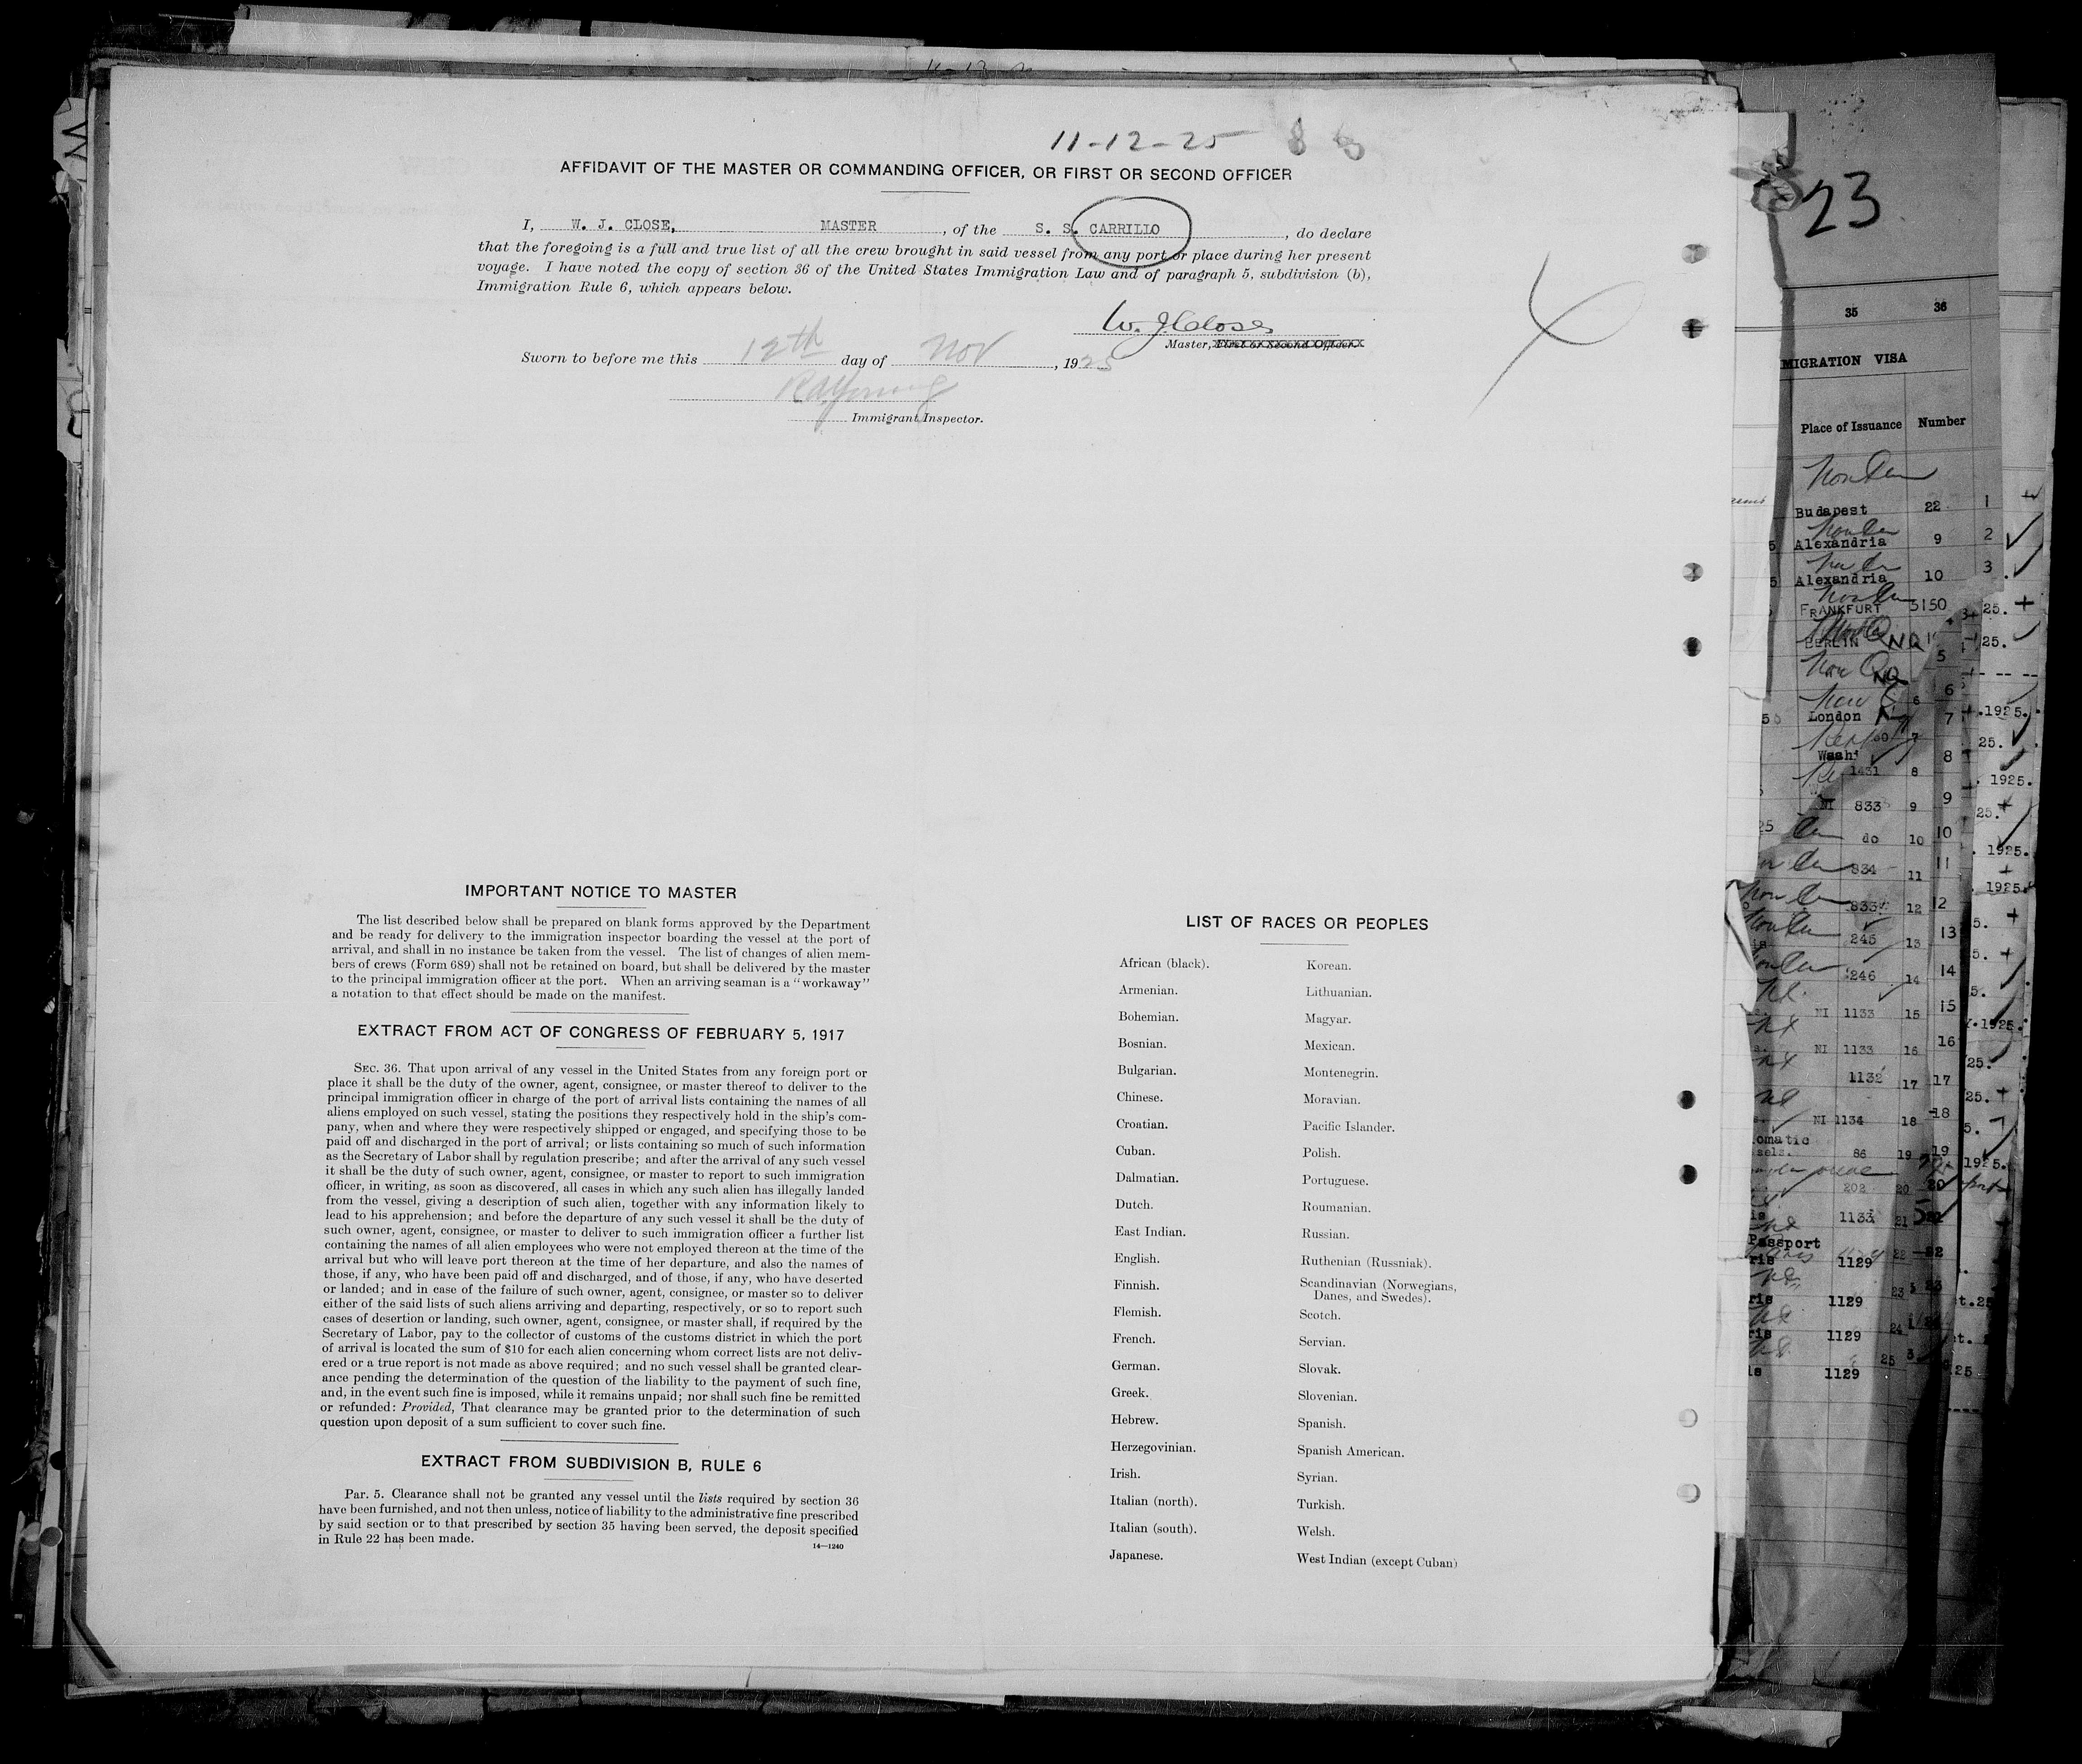 11-12-25
AFFIDAVIT OF THE MASTER OR COMMANDING OFFICER, OR FIRST OR SECOND OFFICER
I, W. J. CLOSE, MASTER, of the S. S. CARRILLO, do declare
that the foregoing is a full and true list of all the crew brought in said vessel from any port or place during her present
voyage. I have noted the copy of section 36 of the United States Immigration Law and of paragraph 5, subdivision (b),
Immigration Rule 6, which appears below.
W. J. Close
Master, First or Second Officer.
Sworn to before me this 12th day of Nov, 1925
Immigrant Inspector.
IMPORTANT NOTICE TO MASTER
The list described below shall be prepared on blank forms approved by the Department
and be ready for delivery to the immigration inspector boarding the vessel at the port of
arrival, and shall in no instance be taken from the vessel. The list of changes of alien mem-
bers of crews (Form 689) shall not be retained on board, but shall be delivered by the master
to the principal immigration officer at the port. When an arriving seaman is a "workaway"
a notation to that effect should be made on the manifest.
EXTRACT FROM ACT OF CONGRESS OF FEBRUARY 5, 1917
SEC. 36. That upon arrival of any vessel in the United States from any foreign port or
place it shall be the duty of the owner, agent, consignee, or master thereof to deliver to the
principal immigration officer in charge of the port of arrival lists containing the names of all
aliens employed on such vessel, stating the positions they respectively hold in the ship's com-
pany, when and where they were respectively shipped or engaged, and specifying those to be
paid off and discharged in the port of arrival; or lists containing so much of such information
as the Secretary of Labor shall by regulation prescribe; and after the arrival of any such vessel
it shall be the duty of such owner, agent, consignee, or master to report to such immigration
officer, in writing, as soon as discovered, all cases in which any such alien has illegally landed
from the vessel, giving a description of such alien, together with any information likely to
lead to his apprehension; and before the departure of any such vessel it shall be the duty of
such owner, agent, consignee, or master to deliver to such immigration officer a further list
containing the names of all alien employees who were not employed thereon at the time of the
arrival but who will leave port thereon at the time of her departure, and also the names of
those, if any, who have been paid off and discharged, and of those, if any, who have deserted
or landed; and in case of the failure of such owner, agent, consignee, or master so to deliver
either of the said lists of such aliens arriving and departing, respectively, or so to report such
cases of desertion or landing, such owner, agent, consignee, or master shall, if required by the
Secretary of Labor, pay to the collector of customs of the customs district in which the port
of arrival is located the sum of $10 for each alien concerning whom correct lists are not deliv-
ered or a true report is not made as above required; and no such vessel shall be granted clear-
ance pending the determination of the question of the liability to the payment of such fine,
and, in the event such fine is imposed, while it remains unpaid; nor shall such fine be remitted
or refunded: Provided, That clearance may be granted prior to the determination of such
question upon deposit of a sum sufficient to cover such fine.
EXTRACT FROM SUBDIVISION B, RULE 6
Par. 5. Clearance shall not be granted any vessel until the lists required by section 36
have been furnished, and not then unless, notice of liability to the administrative fine prescribed
by said section or to that prescribed by section 35 having been served, the deposit specified
in Rule 22 has been made.
14—1240
LIST OF RACES OR PEOPLES
African (black).
Armenian.
Bohemian.
Bosnian.
Bulgarian.
Chinese.
Croatian.
Cuban.
Dalmatian.
Dutch.
East Indian.
English.
Finnish.
Flemish.
French.
German.
Greek.
Hebrew.
Herzegovinian.
Irish.
Italian (north).
Italian (south).
Japanese.
Korean.
Lithuanian.
Magyar.
Mexican.
Montenegrin.
Moravian.
Pacific Islander.
Polish.
Portuguese.
Roumanian.
Russian.
Ruthenian (Russniak).
Scandinavian (Norwegians,
Danes, and Swedes).
Scotch.
Servian.
Slovak.
Slovenian.
Spanish.
Spanish American.
Syrian.
Turkish.
Welsh.
West Indian (except Cuban)
23
35 36
MIGRATION VISA
Place of Issuance Number
Budapest 22 1
Alexandria 9 2
Alexandria 10 3
FRANKFURT 5150
BERLIN NQ 5
6
London 7
8
1431 8
NI 833 9 9
do 10 10
834 11 11
833 12 12
245 13 13
246 14 14
NI 1133 15 15
NI 1133 16 16
1132 17 17
NI 1134 18 18
86 19 19
202 20 20
1133 21
Passport
1129
1129
1129
25
1129